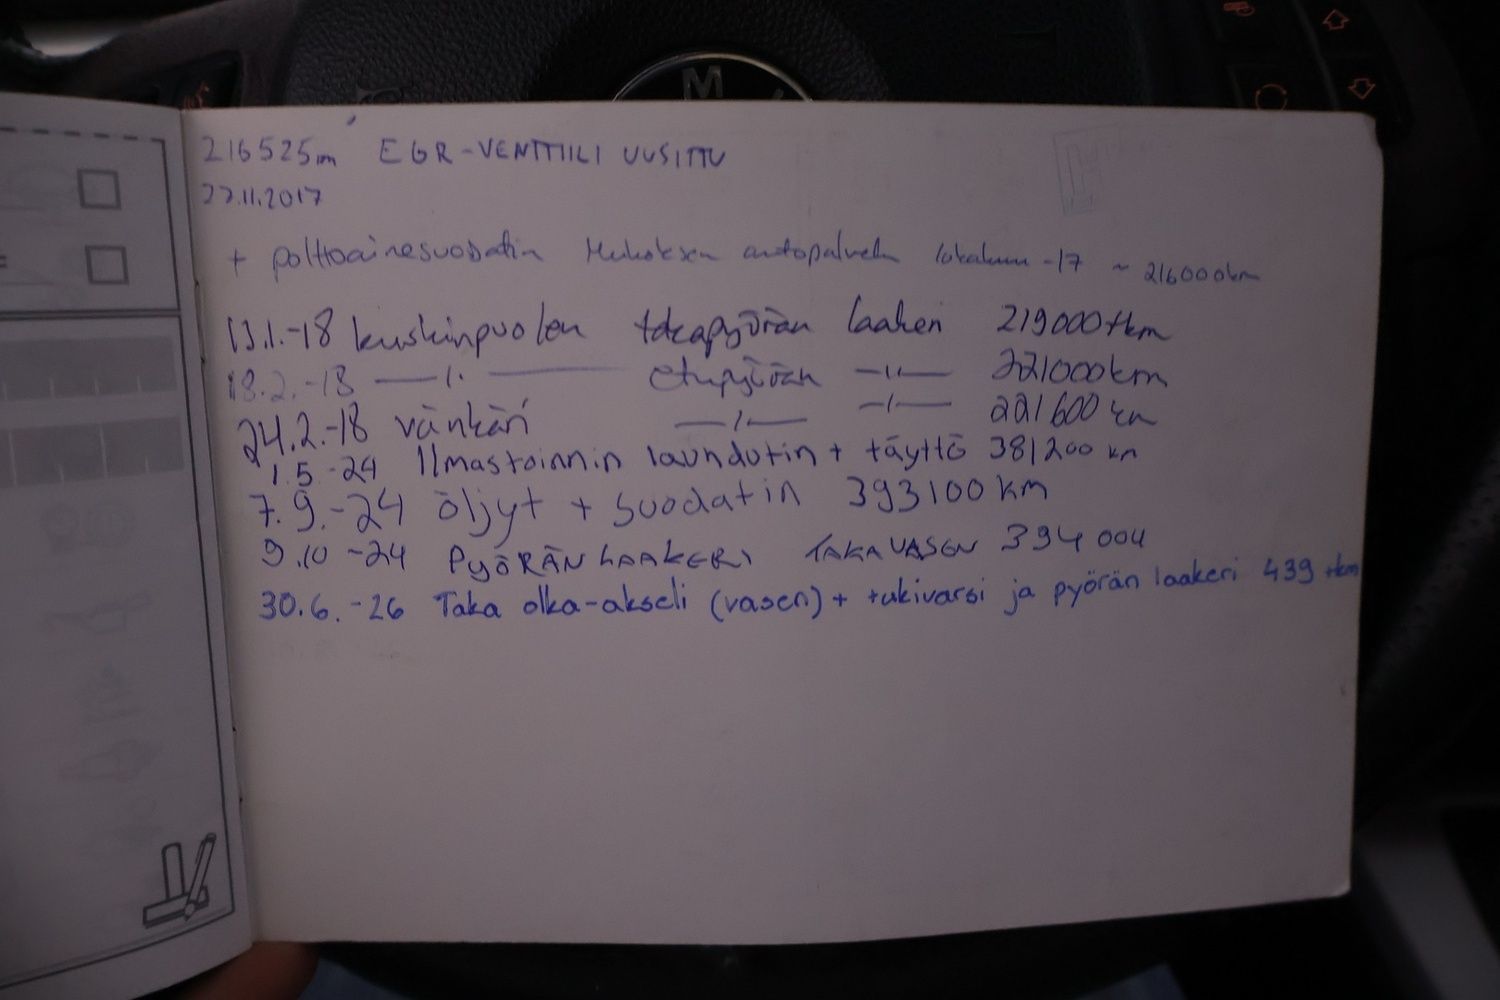 M
216525km EGR-VENTTIILI UUSITTU
27.11.2017
+ polttoainesuodatin autopalvelu lokakuu -17 ~ 216000km
13.1.-18 kuskinpuolen takapyörän laakeri 219000tkm
18.2.-18 —〃— etupyörän —〃— 221000km
24.2.-18 vänkäri —〃— —〃— 221600 km
1.5-24 Ilmastoinnin lauhdutin + täyttö 381200 km
7.9.-24 öljyt + suodatin 393100 km
9.10-24 PYÖRÄN LAAKERI TAKA VASEN 394 004
30.6.-26 Taka olka-akseli (vasen) + tukivarsi ja pyörän laakeri 439 tkm